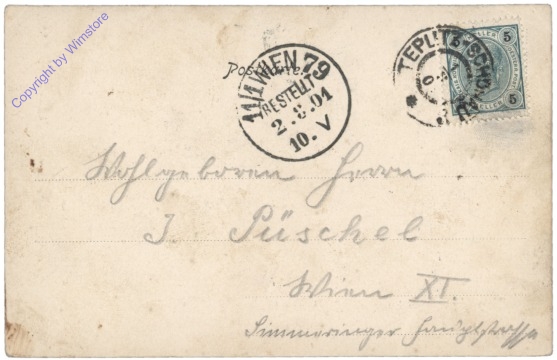 Copyright by Wimstore
Postkarte
11/1 WIEN 79
BESTELLT
2.8.01
10.V
TEPLITZ-SCHÖNAU
5
5
HELLER
Wohlgeboren Herrn
J Püschel
Wien XI.
Simmeringer Hauptstrasse